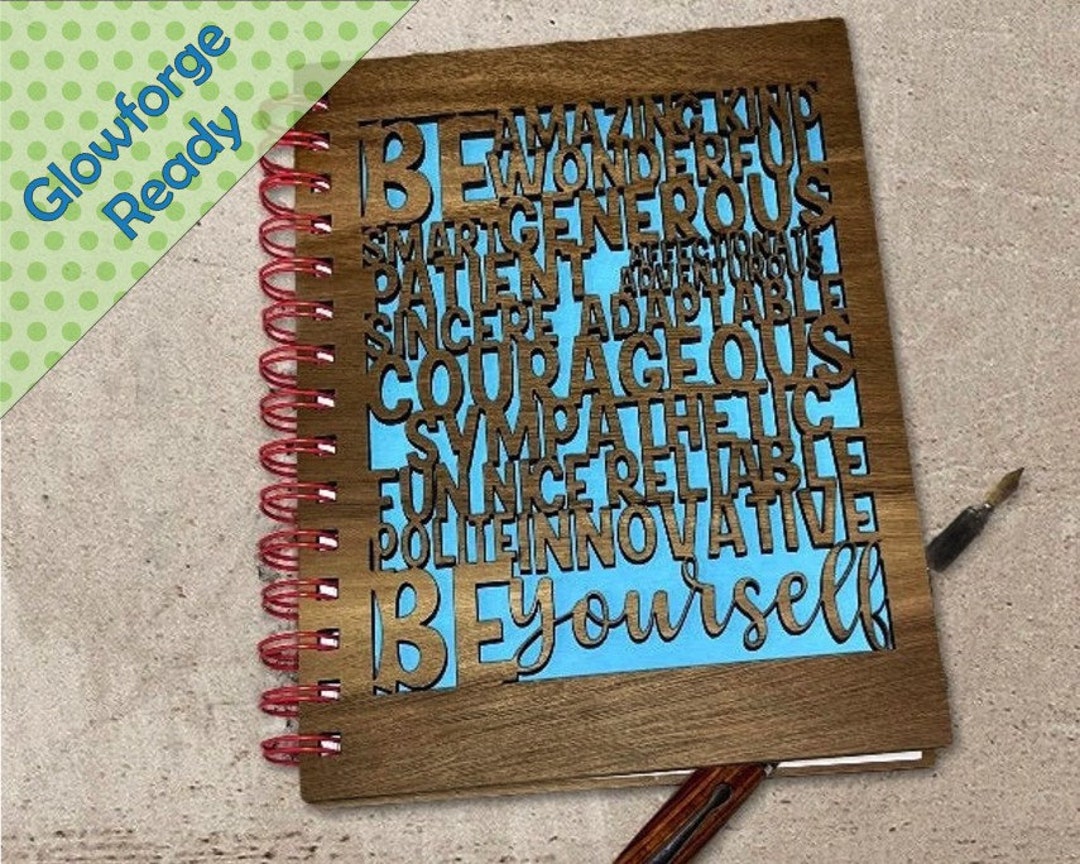 Glowforge
Ready
BE AMAZING KIND
WONDERFUL
GENEROUS
SMART
PATIENT AFFECTIONATE
ADVENTUROUS
SINCERE ADAPTABLE
COURAGEOUS
SYMPATHETIC
FUN NICE RELIABLE
POLITE INNOVATIVE
BE yourself